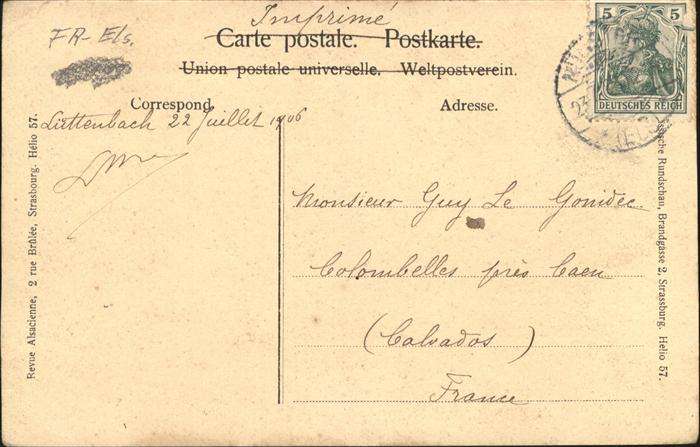 Imprimé
FR- Els.
Carte postale. Postkarte.
Union postale universelle. Weltpostverein.
5 5
DEUTSCHES REICH
Correspond.
Adresse.
Luttenbach 22 Juillet 1906
Monsieur Guy Le Gonidec
Colombelles près Caen
(Calvados)
France
Revue Alsacienne, 2 rue Brûlée, Strasbourg. Hélio 57.
Rundschau, Brandgasse 2, Strassburg. Helio 57.